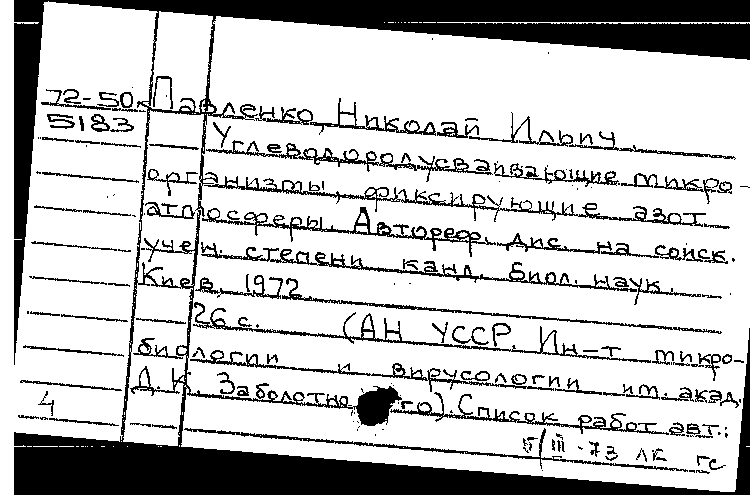 72-50к Павленко, Николай Ильич.
5183 Углеводородусваивающие микро-
организмы, фиксирующие азот
атмосферы. Автореф. дис. на соиск.
учен. степени канд. биол. наук.
Киев, 1972.
26 с. (АН УССР. Ин-т микро-
биологии и вирусологии им. акад.
Д. К. Заболотного). Список работ авт.:
4 5/III-73 ЛК гс